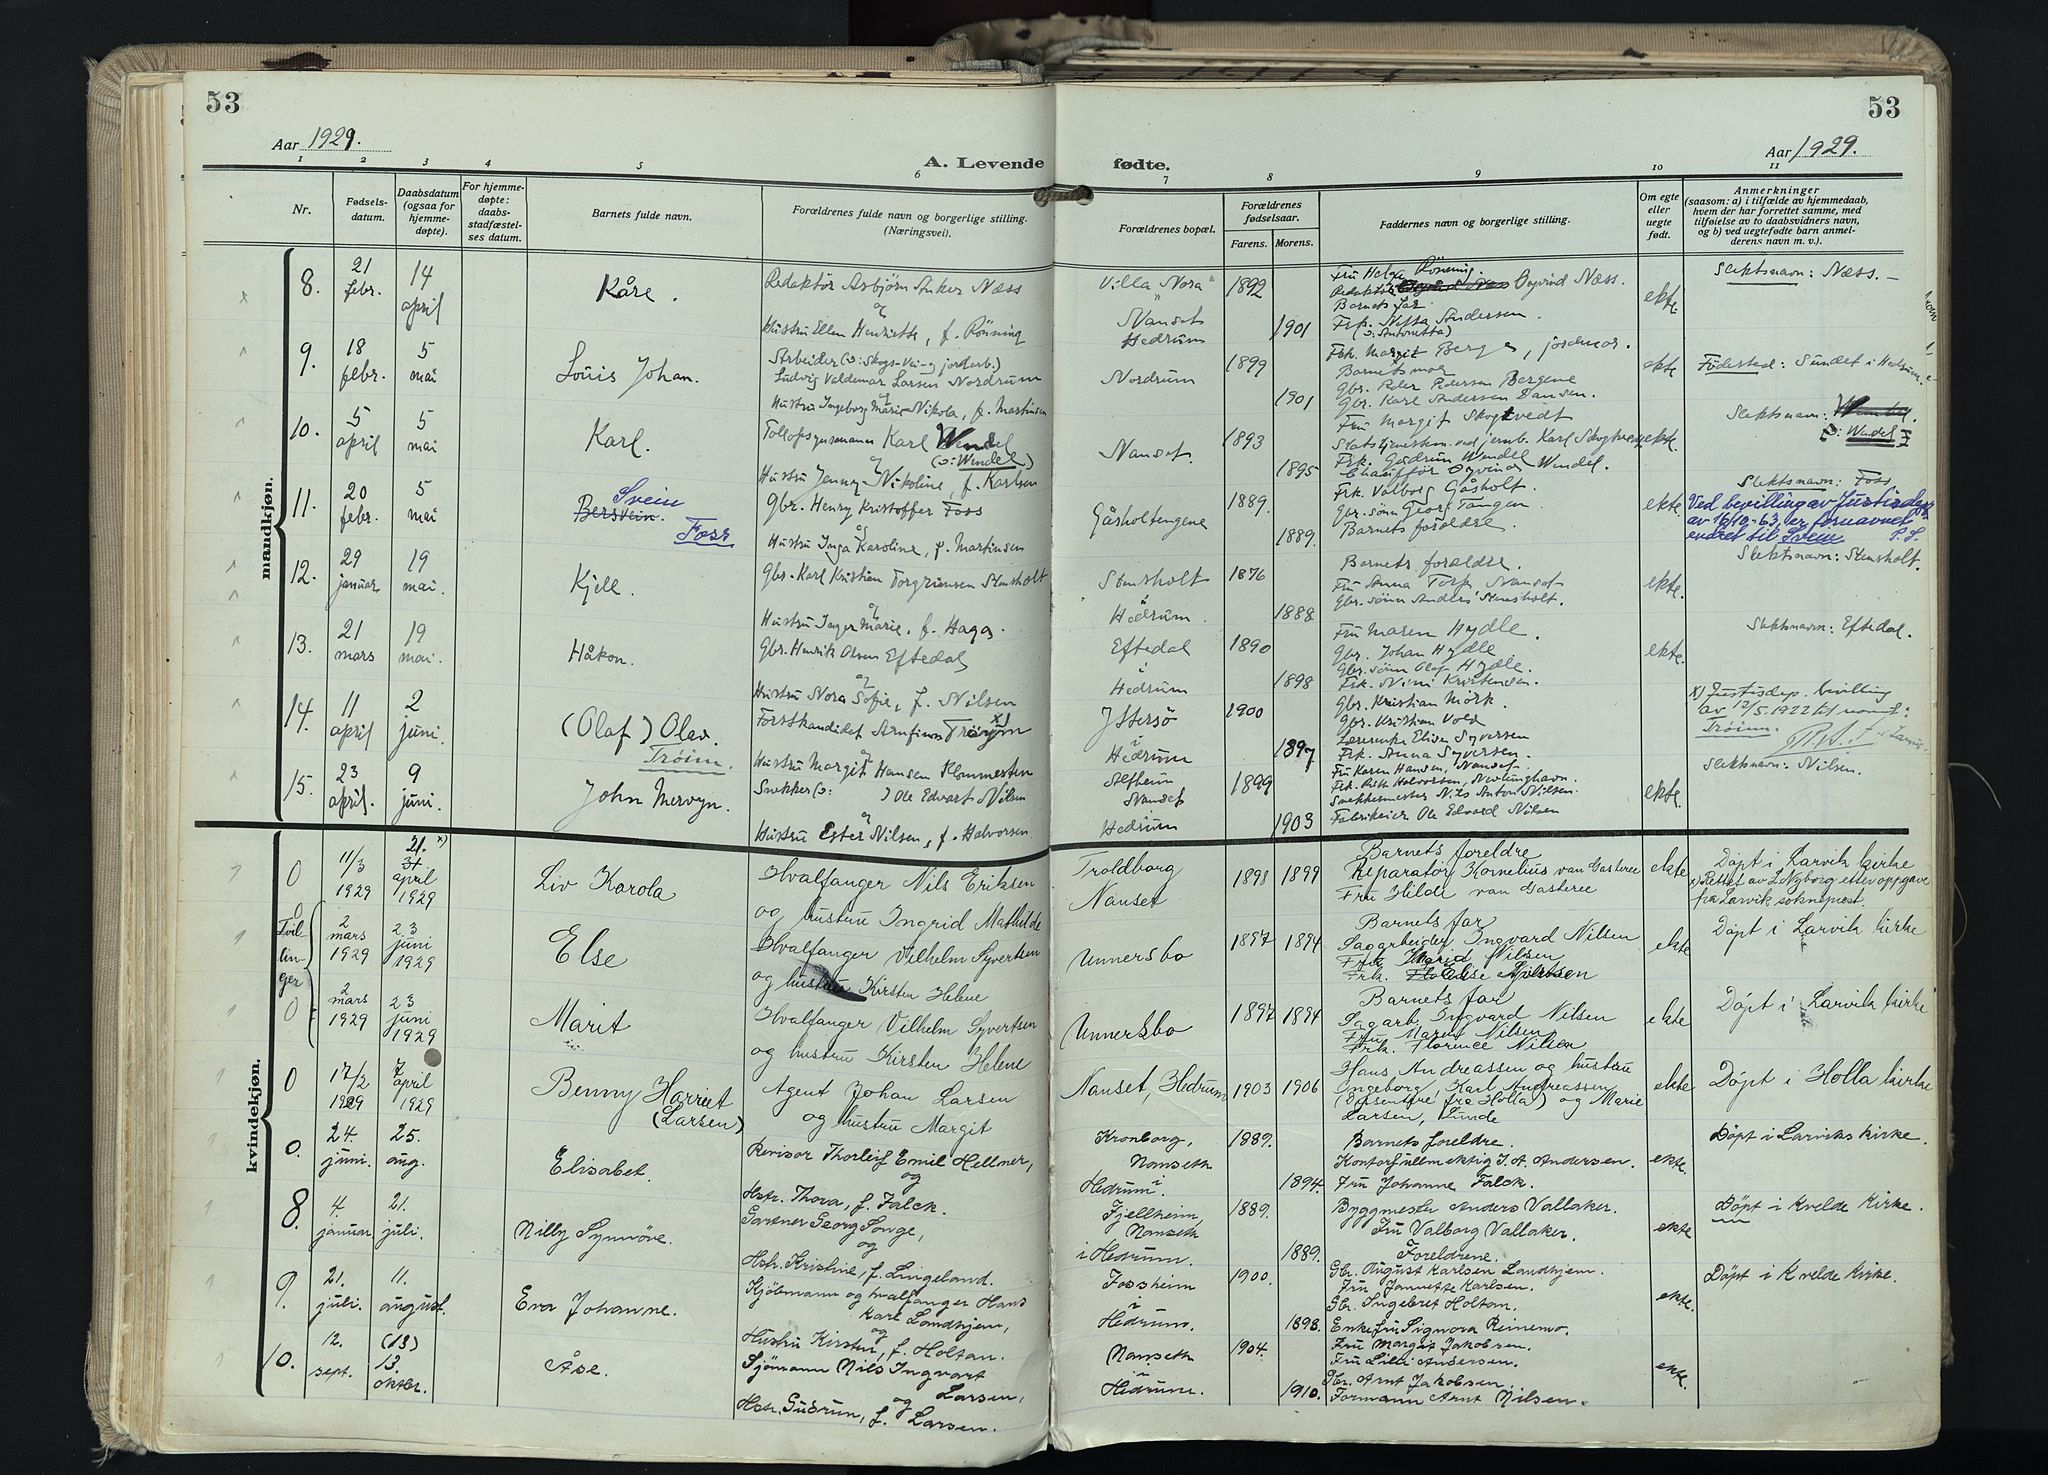 53
53
Aar 1929.
A. Levende
fødte.
Aar 1929.
1
2
3
4
5
6
7
8
9
10
11
Nr.
Fødsels-
datum.
Daabsdatum
(ogsaa for
hjemme-
døpte).
For hjemme-
døpte:
daabs-
stadfæstel-
ses datum.
Barnets fulde navn.
Forældrenes fulde navn og borgerlige stilling.
(Næringsvei).
Forældrenes bopæl.
Forældrenes
fødselsaar.
Farens.
Morens.
Faddernes navn og borgerlige stilling.
Om egte
eller
uegte
født.
Anmerkninger
(saasom: a) i tilfælde av hjemmedaab,
hvem der har forrettet samme, med
tilføielse av to daabsvidners navn,
og b) ved uegtefødte barn anmel-
derens navn m. v.).
mandkjøn.
8.
21
febr.
14
april
Kåre.
Redaktör Asbjörn Anker Næss
og
Hustru Ellen Henriette, f. Röning
"Villa Nora"
Nanset
Hedrum
1892
1901
Fru Helga Röning.
Redaktör Öyvind Næss.
Barnets far.
Frk. Netta Andersen
(ɔ: Antonetta)
ekte.
Slektsnavn: Næss. –
9.
18
febr.
5
mai
Louis Johan.
Arbeider (ɔ: Skogs- Vei- og jordarb.)
Ludvig Valdemar Larsen Nordrum
og
Hustru Ingeborg Marie Nikola, f. Martinsen
Nordrum
1899
1901
Frk. Margit Berge, jordmor.
Barnets mor
Gbr. Peder Pedersen Bergene
Gbr. Karl Andersen Dansen.
ekte
Födested: Sundet i Hedrum.
10.
5
april
5
mai
Karl.
Karl Wendel
(ɔ: Wendel)
og
Hustru Jenny Nikoline, f. Karlsen
Nanset.
1893
1895
Fru Margit Skogtvedt
Statstjenestem. ved jernb. Karl Skogtvedt
Frk. Gudrun Wendel
Chaufför Öyvind Wendel.
ekte.
Slektsnavn:
[ɔ: Wendel]
11.
20
febr.
5
mai
Svein
Bersvein.
Foss
Gbr. Henry Kristoffer Foss
og
Hustru Inga Karoline, f. Martinsen
Gåsholtengene
1889.
1889.
Frk. Valborg Gåsholt.
Gbr. sönn Georg Tangen
Barnets foreldre.
ekte.
Slektsnavn: Foss
Ved bevilling av Justisdep.
av 16/10-63, er fornavnet
endret til Svein P.S.
12.
29
januar
19
mai.
Kjell.
Gbr. Karl Kristian Torgriensen Stensholt
og
Hustru Inger Marie, f. Haga.
Stensholt
i
Hedrum.
1876
1888
Barnets foreldre.
Fru Anna Torp Nanset
Gbr. sönn Anders Stensholt.
ekte.
Slektsnavn: Stensholt.
13.
21
mars
19
mai.
Håkon.
Gbr. Henrik Olsen Eftedal
og
Hustru Nora Sofie, f. Nilsen
Eftedal
i
Hedrum
1890
1898
Fru Maren Hydle.
Gbr. Johan Hydle
Gbr. sönn Olaf Hydle.
Frk. Nini Kristensen.
ekte.
Slektsnavn: Eftedal.
14.
11
april
2
juni.
(Olaf) Olav.
Tröim.
Forstkandidat Arnfinn Tröim x)
og
Hustru Margit Hansen Klommesten
Jttersö
i
Hedrum
1900
1897
Gbr. Kristian Mörk.
Gbr. Kristian Vold
Lærerinne Elise Syversen
Frk. Anna Syversen.
x) Justisdep. bevilling
av 12/5.1922 til navnet:
Tröim.
15.
23
april.
9
juni.
John Mervyn.
Snekker (ɔ: ) Ole Edvart Nilsen
og
Hustru Ester Nilsen, f. Halvorsen.
Alfheim
Nanset
Hedrum
1899
1903
Fru Karen Hansen, Nanset.
Frk. Rikk. Halvorsen, Nevlunghavn.
Snekkermester Nils Anton Nilsen.
Fabrikeier Ole Edvard Nilsen
ekte.
Slektsnavn: Nilsen.
kvindekjøn.
0
11/3
1929
21. x)
april
1929
Liv Karola
Hvalfanger Nils Eriksen
og hustru Ingrid Mathilde
Troldborg
Nanset
1898
1899
Barnets foreldre
Reparatör Kornelius van Gasteree
Fru Hilde van Gasteree
ekte
Döpt i Larvik kirke
x) Rettet av L. Nyborg etter oppgave
fra Larvik sokneprest.
0
Tvil-
lin-
ger
2
mars
1929
23
juni
1929
Else
Hvalfanger Vilhelm Syvertsen
og hustru Kirsten Helene
Unnersbo
1897
1894
Barnets far
Sagarbeider Ingvard Nilsen
Fru Marid Nilsen
ekte
Döpt i Larvik kirke
0
2
mars
1929
23
juni
1929
Marit
Hvalfanger Vilhelm Syvertsen
og hustru Kirsten Helene
Unnersbo
1897
1894
Barnets far
Sagarb. Ingvard Nilsen
Fru Marid Nilsen
Frk. Florence Nilsen
ekte
Döpt i Larvik kirke
0
17/2
1929
7
april
1929
Benny Harriet
(Larsen)
Agent Johan Larsen
og hustru Margit
Nanset, Hedrum
1903
1906
Hans Andreassen og hustru
Ingeborg, Karl Andreassen
(Dissentere fra Holla) og Marie
Larsen, Lunde
ekte
Döpt i Holla kirke
0.
24.
juni.
25.
aug.
Elisabet.
Revisor Thorleif Emil Hellner,
og
Hstr. Thora, f. Falck.
Kronborg,
Nanseth
i
Hedrum.
1889.
1894.
Barnets foreldre.
Kontorfullmektig J. A. Andersen.
Fru Johanne Falck.
ekte.
Döpt i Larviks kirke.
8.
4.
januar.
21.
juli.
Nilly Synnöve.
Gartner Georg Songe,
og
Hstr. Kristine, f. Lingeland.
Fjellheim,
Nanseth
i Hedrum.
1889.
1889.
Byggmester Anders Vallaker.
Fru Valborg Vallaker.
Foreldrene.
ekte
Döpt i Kvelde kirke.
9.
21.
juli.
11.
august.
Eva Johanne.
Kjöbmann og hvalfanger Hans
Karl Landhjem,
og
Hustru Kirsten, f. Holtan.
Fossheim
i
Hedrum.
1900.
1898.
Gbr. August Karlsen Landhjem.
Fru Jannette Karlsen.
Gbr. Ingebret Holtan.
Enkefru Signora Reinemo.
ekte.
Döpt i Kvelde kirke.
10.
12.
sept.
(13)
13.
oktbr.
Åse.
Sjömann Nils Ingvart
Larsen,
og
Hstr. Gudrun, f. Larsen.
Nanseth
i
Hedrum.
1904.
1910.
Fru Margit Jakobsen.
Fru Lilli Andersen.
Gbr. Arnt Jakobsen,
Formann Arnt Nilsen.
ekte.